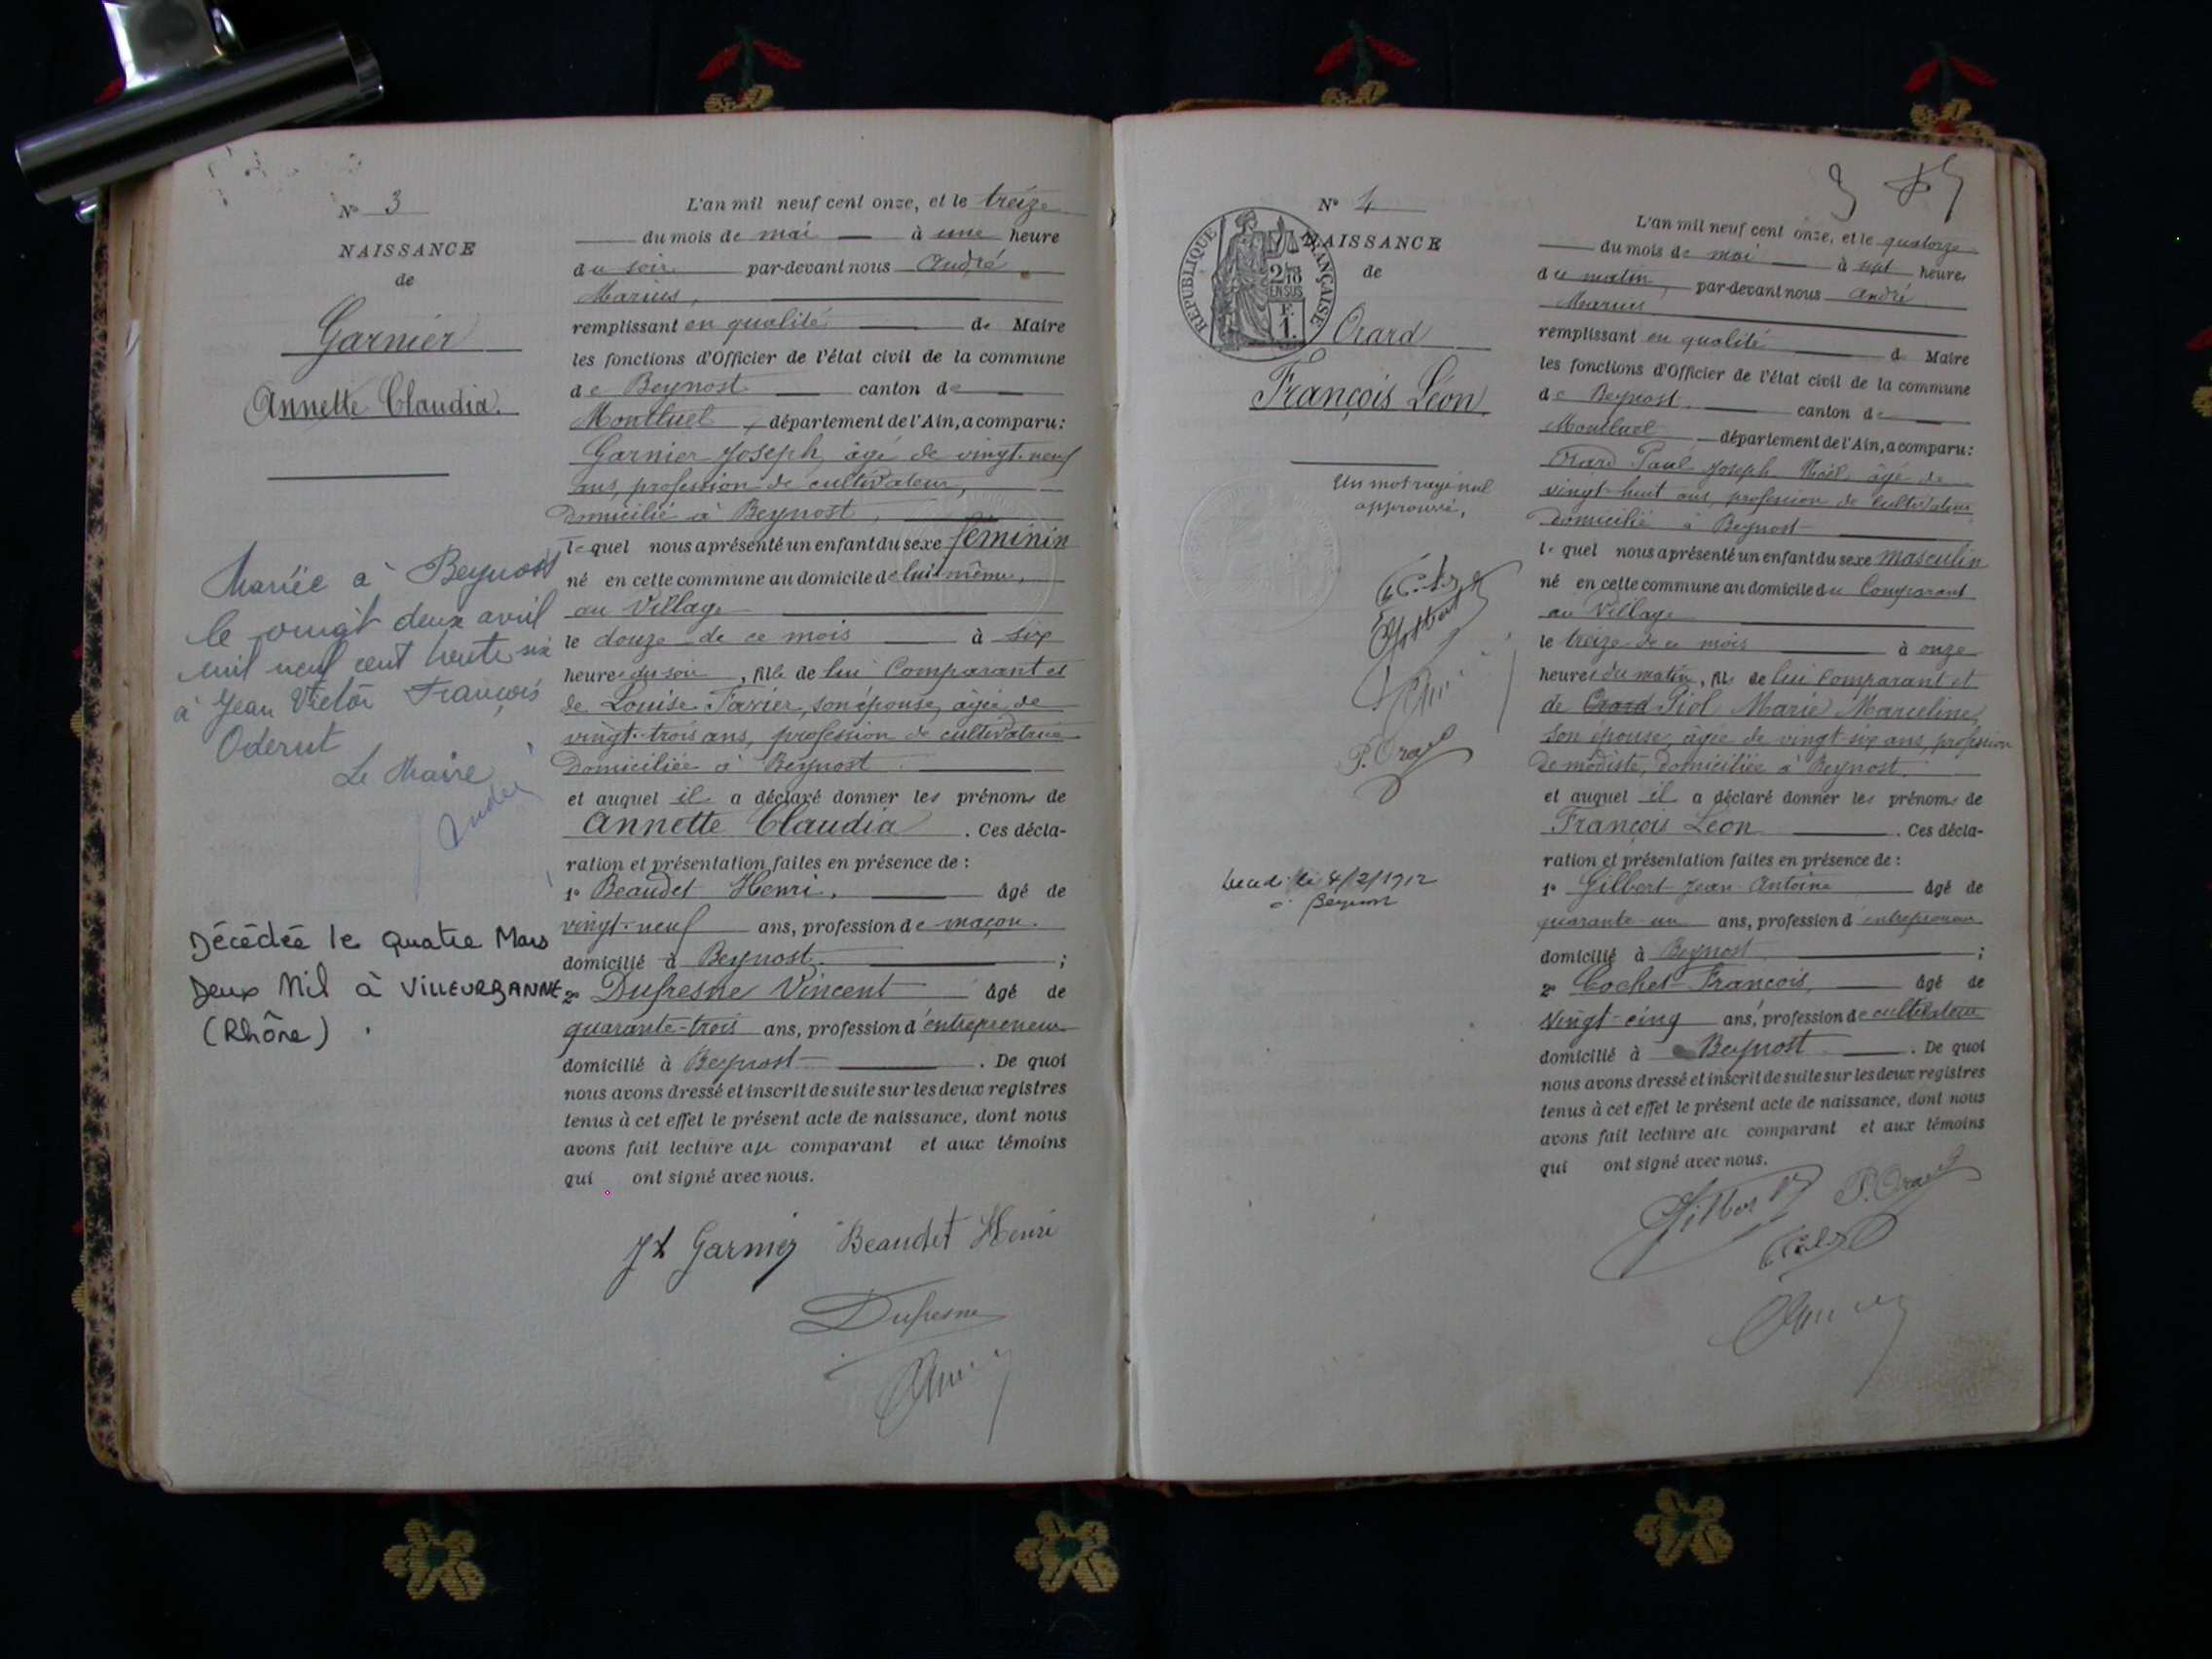 N° 3
NAISSANCE
de
Garnier
Annette Claudia.
Mariée à Beynost
le vingt deux avril
mil neuf cent trente six
à Jean Victor François
Oderut
Le Maire
André
Décédée le quatre Mars
Deux Mil à VILLEURBANNE
(Rhône).
L'an mil neuf cent onze, et le treize
du mois de mai à une heure
du soir par-devant nous André
Marius,
remplissant en qualité de Maire
les fonctions d'Officier de l'état civil de la commune
de Beynost canton de
Montluel, département de l'Ain, a comparu:
Garnier Joseph, âgé de vingt-neuf
ans, profession de cultivateur,
domicilié à Beynost,
lequel nous a présenté un enfant du sexe féminin
né en cette commune au domicile de lui-même,
au Village
le douze de ce mois à six
heures du soir, fille de lui Comparant et
de Louise Tavier, son épouse, âgée de
vingt-trois ans, profession de cultivatrice
domiciliée à Beynost.
et auquel il a déclaré donner les prénoms de
Annette Claudia. Ces décla-
ration et présentation faites en présence de :
1° Beaudet Henri, âgé de
vingt-neuf ans, profession de maçon.
domicilié à Beynost ;
2° Dufresne Vincent âgé de
quarante-trois ans, profession d'entrepreneur
domicilié à Beynost. De quoi
nous avons dressé et inscrit de suite sur les deux registres
tenus à cet effet le présent acte de naissance, dont nous
avons fait lecture au comparant et aux témoins
qui ont signé avec nous.
Jh Garnier Beaudet Henri
Dufresne
3
N° 4
RÉPUBLIQUE FRANÇAISE
2/10
EN SUS
F.
1.
NAISSANCE
de
Orard
François Léon
Un mot rayé nul
approuvé,
Gilbert
P. Orard
le 4/2/1912
à Beynost
L'an mil neuf cent onze, et le quatorze
du mois de mai à sept heures
du matin, par-devant nous André
Marius
remplissant en qualité de Maire
les fonctions d'Officier de l'état civil de la commune
de Beynost canton de
Montluel département de l'Ain, a comparu:
Orard Paul Joseph Noël, âgé de
vingt-huit ans, profession de cultivateur
domicilié à Beynost
lequel nous a présenté un enfant du sexe masculin
né en cette commune au domicile du Comparant
au Village
le treize de ce mois à onze
heures du matin, fils de lui Comparant et
de Orard Piol Marie Marceline,
son épouse, âgée de vingt-six ans, profession
de modiste, domiciliée à Beynost.
et auquel il a déclaré donner les prénoms de
François Léon. Ces décla-
ration et présentation faites en présence de :
1° Gilbert Jean Antoine âgé de
quarante-un ans, profession d'entrepreneur
domicilié à Beynost ;
2° Cochet François, âgé de
vingt-cinq ans, profession de cultivateur
domicilié à Beynost. De quoi
nous avons dressé et inscrit de suite sur les deux registres
tenus à cet effet le présent acte de naissance, dont nous
avons fait lecture au comparant et aux témoins
qui ont signé avec nous.
Gilbert P. Orard